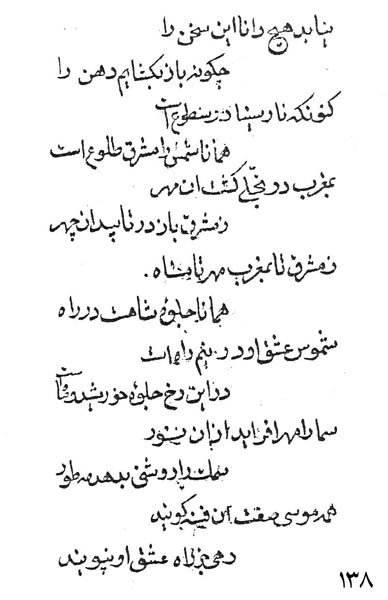 نیابد هیچ دانا این سخن را
چگونه باز بگشایم دهن را
کنونکه نار سینا در سطوع است
همانا شمس را مشرق طلوع است
بمغرب در تجلی گشت ان مهر
زمشرق باز در تابید ان چهر
زمشرق تا بمغرب مهر تا ماه
همانا جلوهٔ شاهت در راه
شموس عشق او در نیم راهات
در این رخ جلوهٔ خورشید و تابان
سما را مهر افزاید از ان نور
سمک را روشنی بدهد طور
همه موسی صفت ان فیه گویند
رهی جز راه عشق او نپویند
۱۳۸